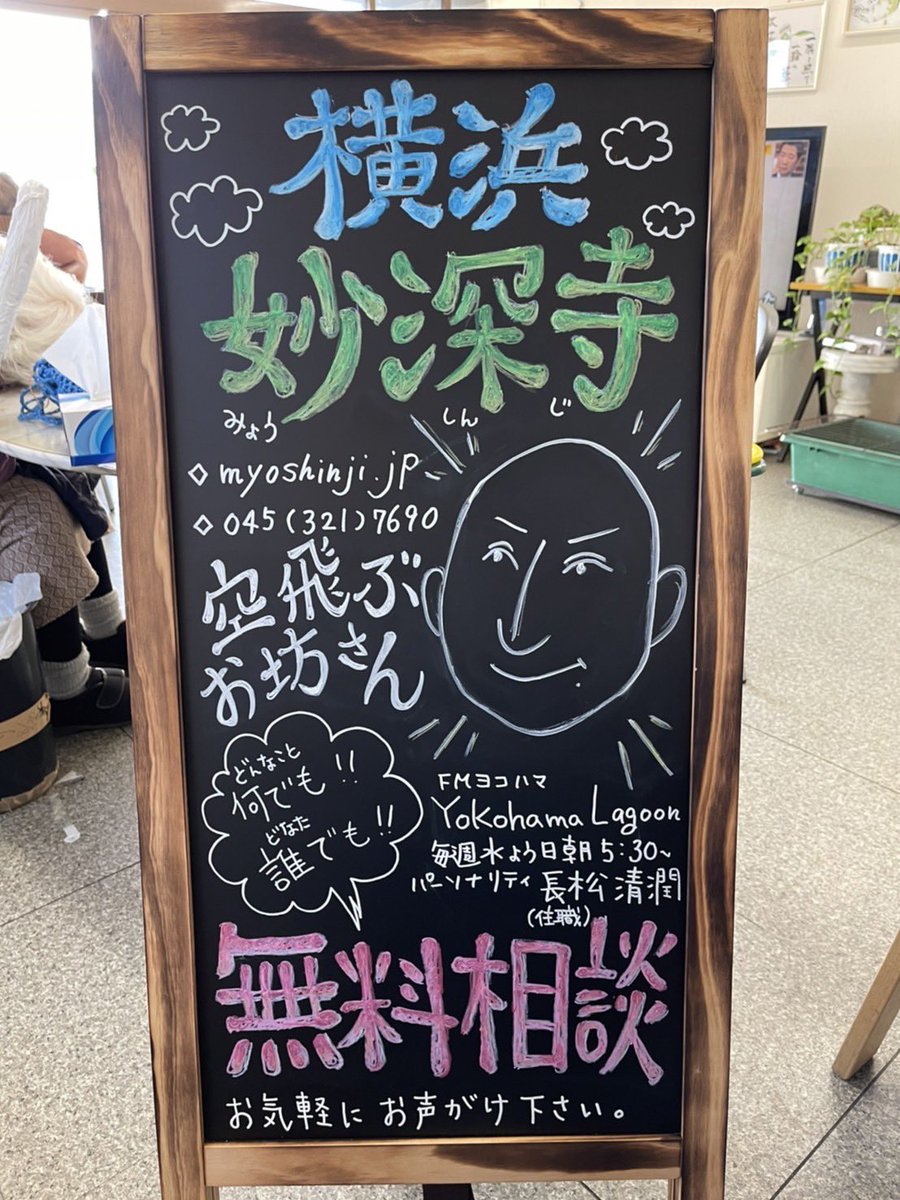 横浜
妙深寺
みょう しん じ
◇ myoshinji.jp
◇ 045(321)7690
空飛ぶ
お坊さん
どんなこと
何でも!!
どなた
誰でも!!
FMヨコハマ
Yokohama Lagoon
毎週水よう日朝5:30~
パーソナリティ 長松清潤
(住職)
無料相談
お気軽にお声がけ下さい。